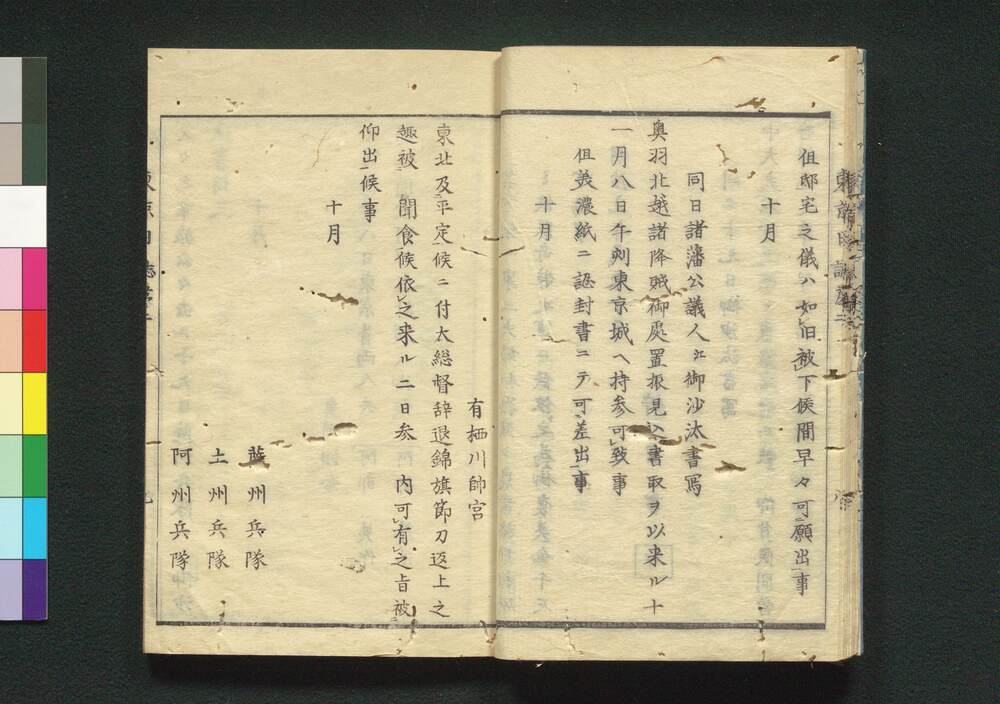 但邸宅之儀ハ如旧被下候間早々可願出事
十月
同日諸藩公議人江御沙汰書写
奥羽北越諸降賊御處置振見込書取ヲ以来ル十
一月八日午刻東京城ヘ持参可致事
但美濃紙ニ認封書ニテ可差出事
十月
有栖川帥宮
東北及平定候ニ付大総督辞退錦旗節刀返上之
趣被聞食候依之来ル二日参内可有之旨被
仰出候事
十月
薩州兵隊
土州兵隊
阿州兵隊